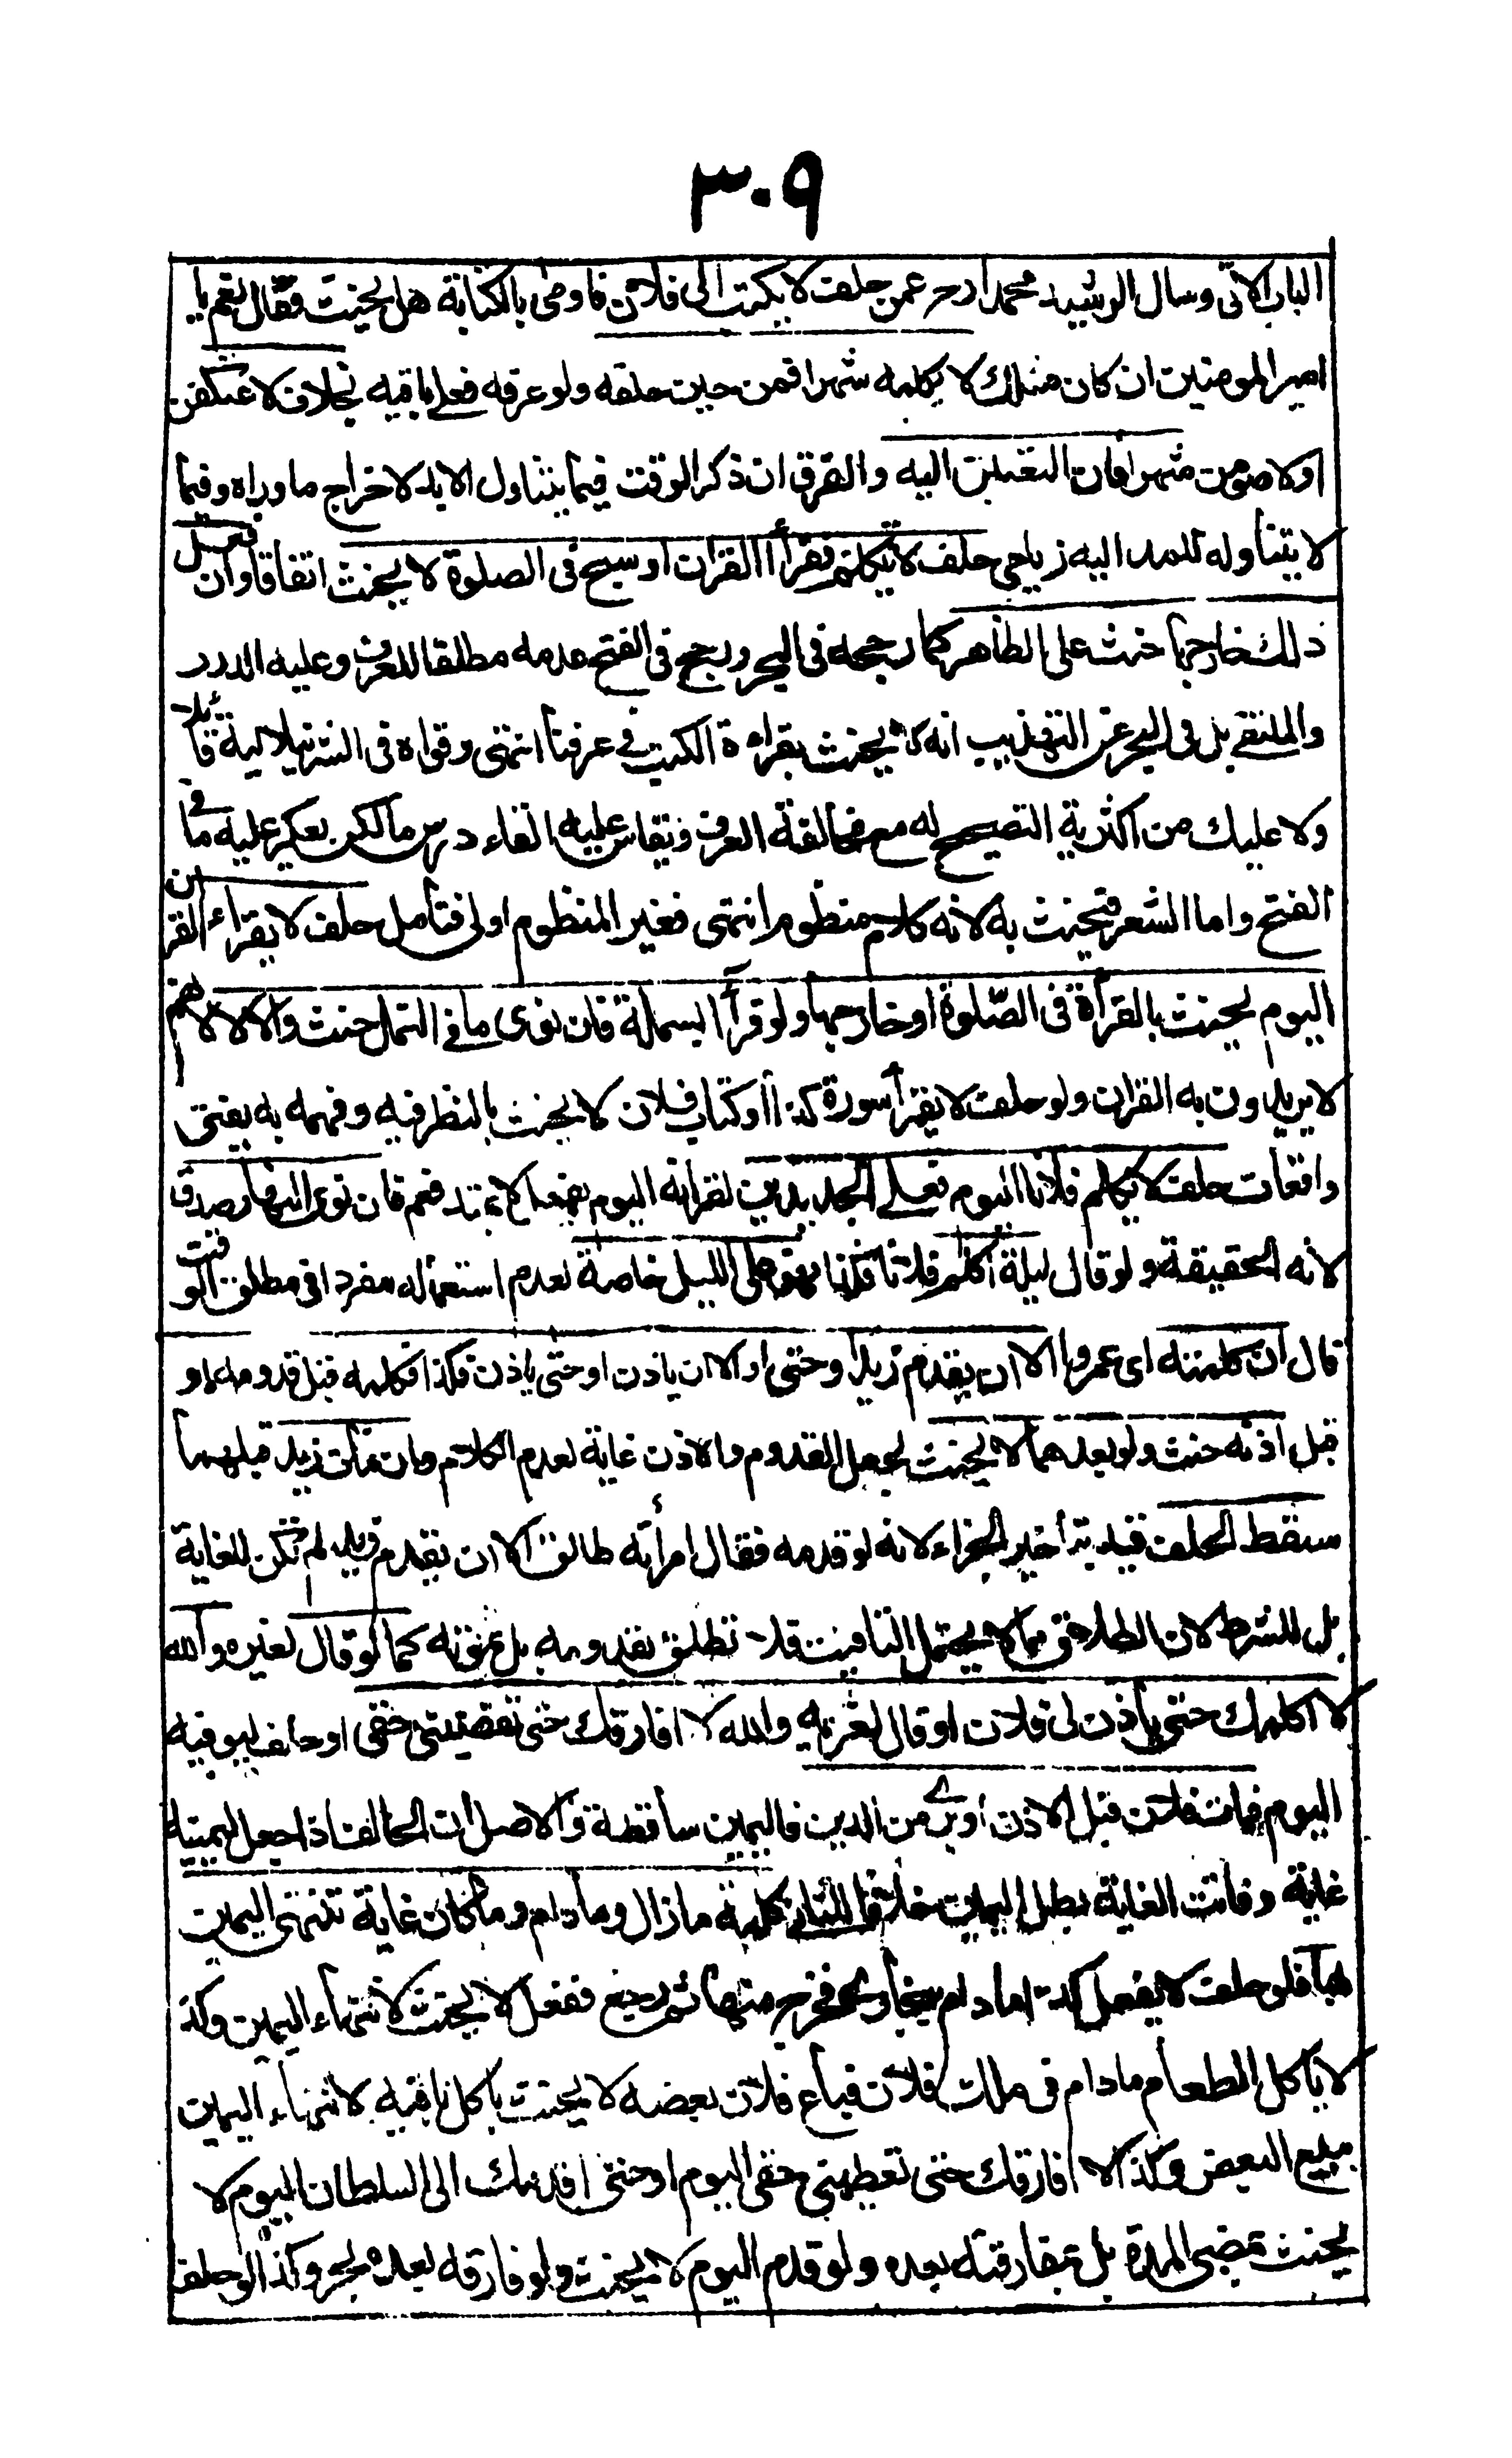 ٣٠٩
الباب الاتى وسال الرشيد محمدا رح عمن حلف لا يكتب الى فلان فاومى بالكتابة هل يحنث فقال نعم يا
امير المومنين ان كان مثلك لا يكلمه شهرا فمن حين حلفه ولو عرفه فعلى باقيه بخلاف لاعتكفن
اولاصومن شهرا فان التعيين اليه والفرق ان ذكر الوقت فيما يتناول الابد لاخراج ما وراه وفيما
لا يتناوله للمد اليه زيلعى حلف لا يتكلم فقرأ القران او سبح فى الصلوة لا يحنث اتفاقا وان فعل
ذلك خارجها حنث على الظاهر كما رجحه فى البحر ورجح فى الفتح عدمه مطلقا للعرف وعليه الدرر
والملتقى بل فى البحر عن التهذيب انه لا يحنث بقراءة الكتب فى عرفنا انتهى وقواه فى الشرنبلالية قائلا
ولا عليك من اكثرية التصحيح له مع مخالفة العرف ونقاس عليه القاء درس ما لكن يعكر عليه ما فى
الفتح واما الشعر فيحنث به لانه كلام منظوم انتهى فغير المنظوم اولى فتأمل حلف لا يقراء القران
اليوم يحنث بالقرأة فى الصلوة او خارجها ولو قرأ البسملة فان نوى ما فى النمل حنث والا لا لانهم
لا يريدون به القران ولو حلف لا يقرأ سورة كذا او كتاب فلان لا يحنث بالنظر فيه وفهمه به يفتى
واقعات حلف لا يكلم فلانا اليوم فعلى الجديدين لقرانه اليوم بفعل لا يمتد فعم فان نوى النهار صدق
لانه الحقيقة ولو قال ليلة اكلم فلانا فكذا فهو على الليل خاصة لعدم استعماله مفردا فى مطلق الوقت
قال ان كلمته اى عمروا الا ان يقدم زيد او حتى او الا ان ياذن او حتى ياذن فكذا فكلمه قبل قدومه او
قبل اذنه حنث ولو بعدهما لا يحنث لجعل القدوم والاذن غاية لعدم الكلام وان مات زيد قبلهما
سقط الحلف قيد بتأخير الجزاء لانه لو قدمه فقال امرأته طالق الا ان يقدم زيد لم تكن للغاية
بل للشرط لان الطلاق مما لا يحتمل التاقيت فلا تطلق بقدومه بل بموته كما لو قال لغيره والله
لا اكلمك حتى ياذن لى فلان او قال لغريمه والله لا افارقك حتى تقضينى حقى او حلف ليوفينه
اليوم فمات فلان قبل الاذن او برئ من الدين فاليمين ساقطة والاصل ان الحالف اذا جعل ليمينه
غاية وفاتت الغاية بطل اليمين خلافا للثانى كلمة ما زال وما دام وما كان غاية تنتهى اليمين
بها فلو حلف لا يفعل كذا ما دام ببخارى فخرج منها ثم رجع ففعل لا يحنث لانتهاء اليمين وكذا
لا يأكل الطعام مادام فى ملك فلان فباع فلان بعضه لا يحنث باكل باقيه لانتهاء اليمين
ببيع البعض وكذا لا افارقك حتى تعطينى حقى اليوم او حتى اقدمك الى السلطان اليوم لا
يحنث بمضى المدة بل بمفارقته بعده ولو قدم اليوم لا يحنث ولو فارقه بعده بحر وكذا لو حلف